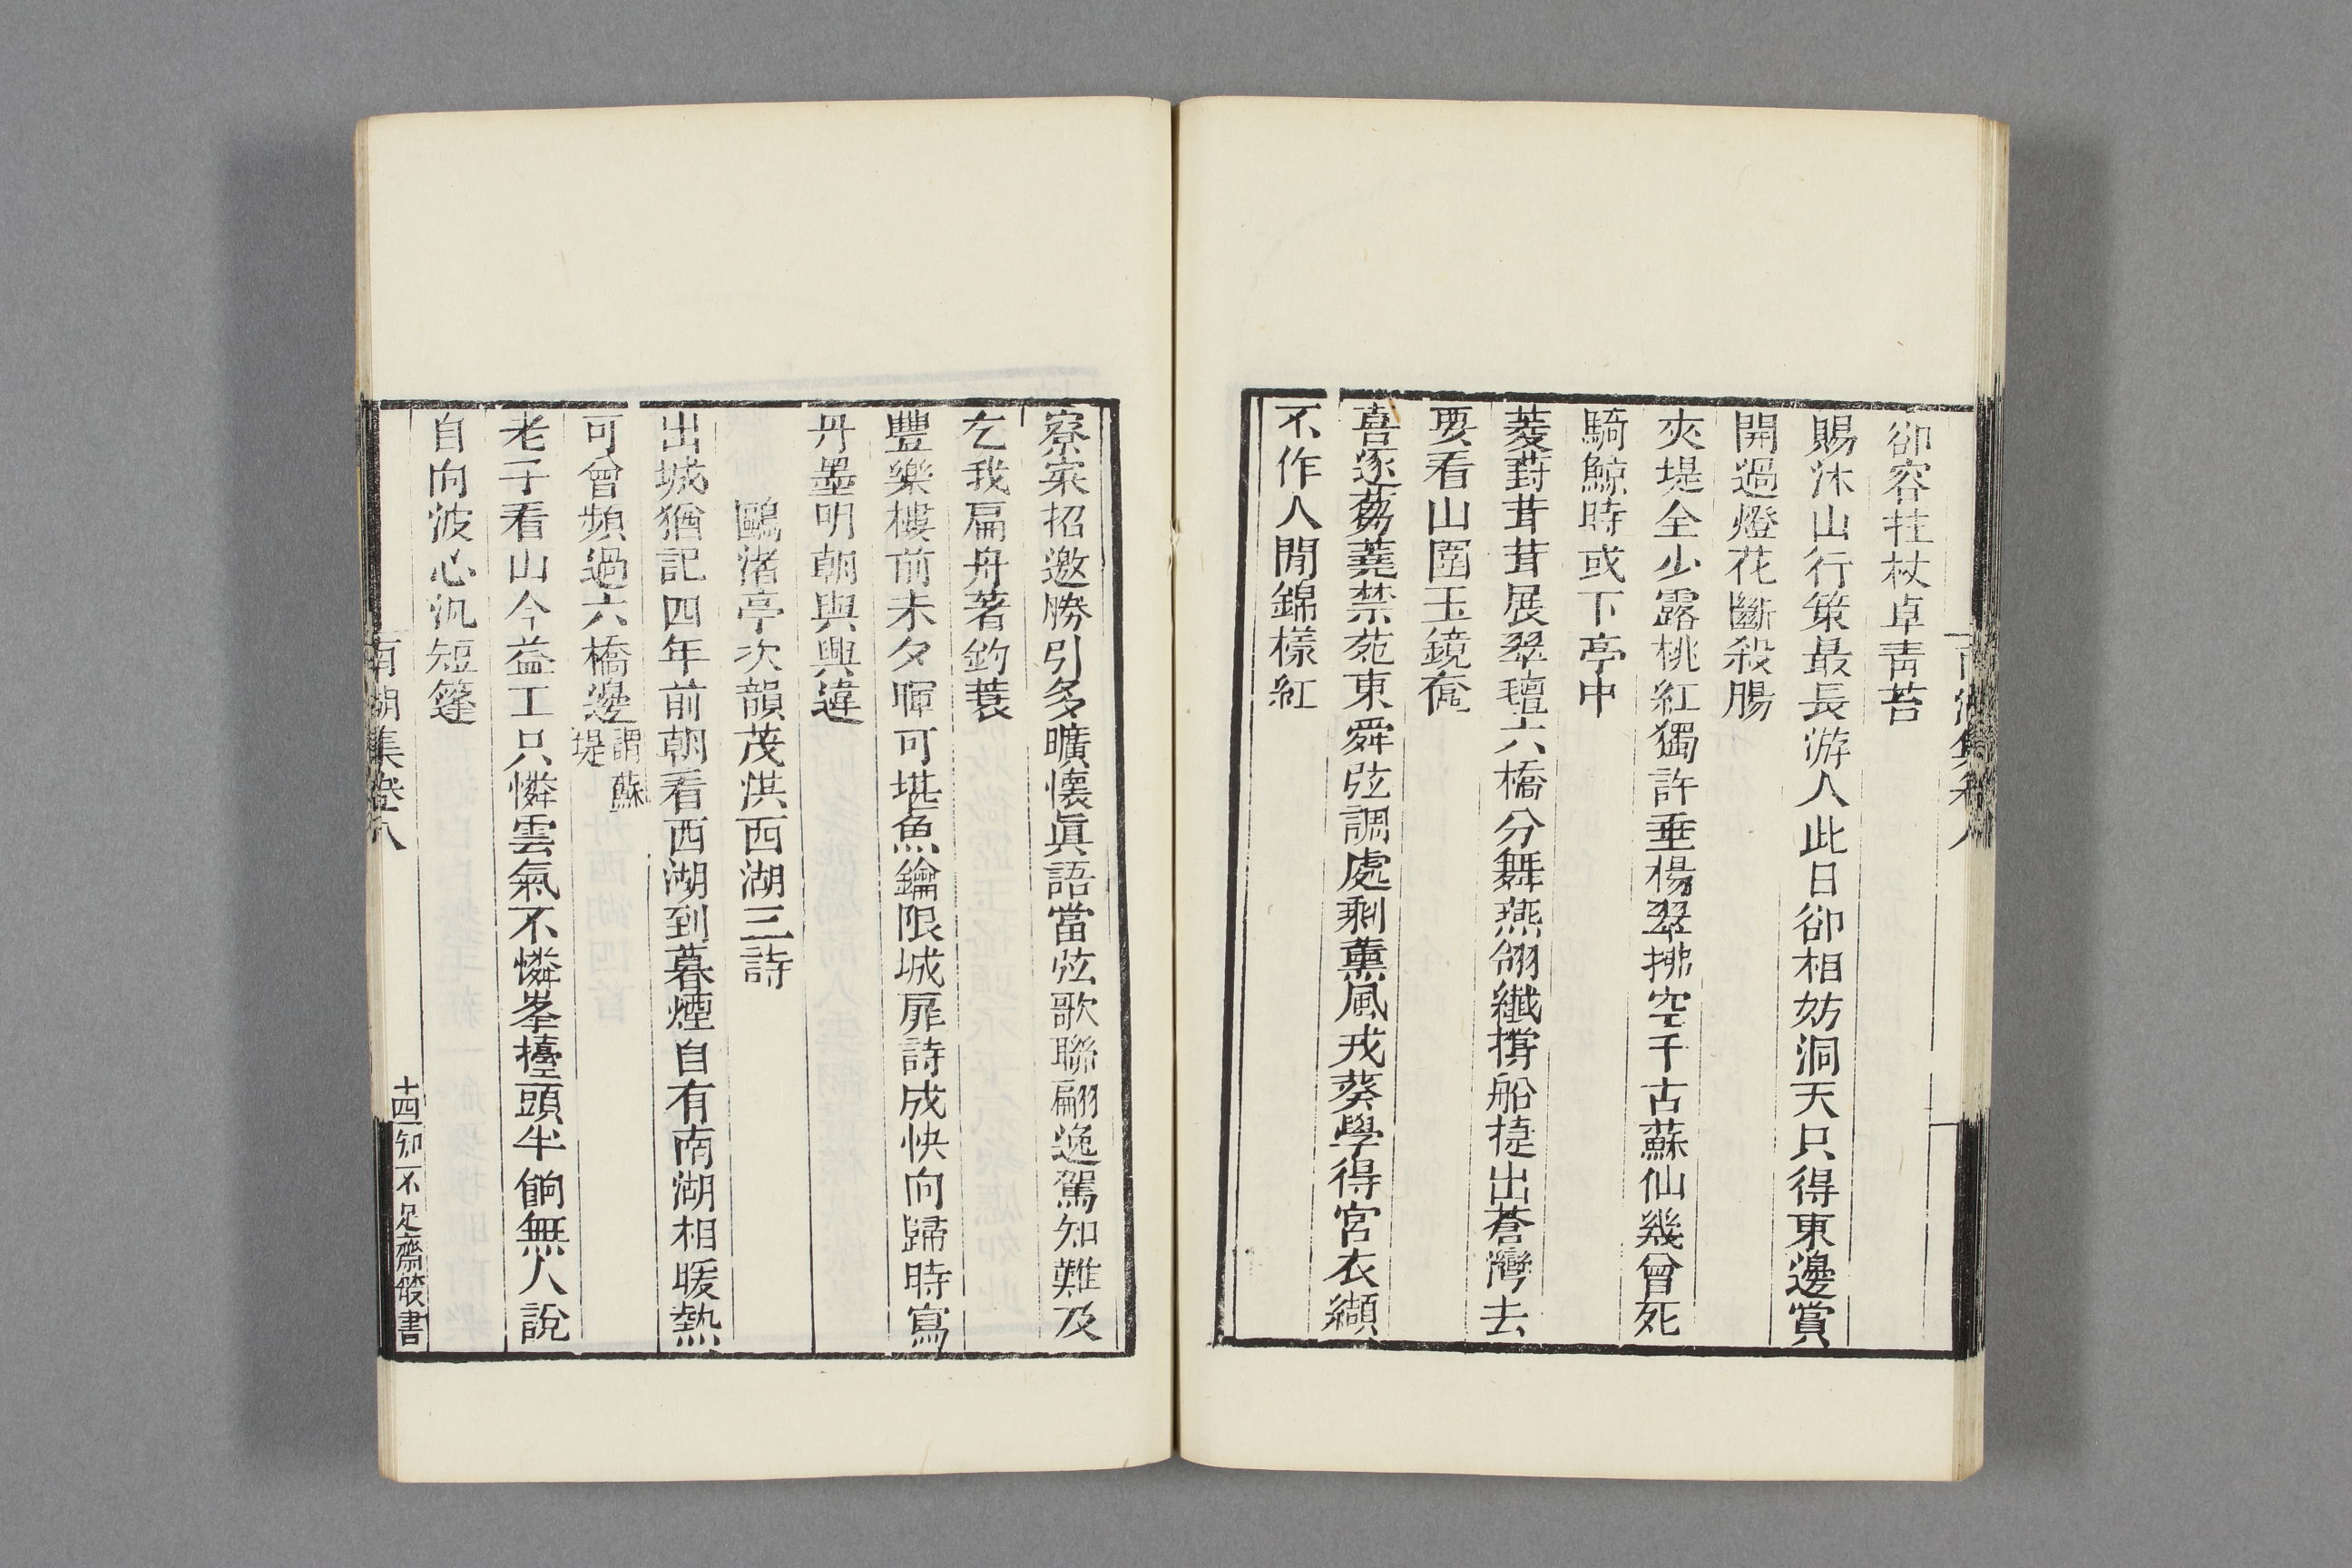 南湖集卷八
卻容拄杖卓青苔
賜沐山行策最長游人此日卻相妨洞天只得東邊賞
開過燈花斷殺腸
夾堤全少露桃紅獨許垂楊翠拂空千古蘇仙幾曾死
騎鯨時或下亭中
菱葑茸茸展翠氊六橋分舞燕翎纖撐船揵出蒼灣去
要看山圍玉鏡奩
喜逐芻蕘禁苑東舜弦調處剩薰風戎葵學得宮衣纈
不作人閒錦樣紅
寮寀招邀勝引多曠懷眞語當弦歌聯翩逸駕知難及
乞我扁舟著釣蓑
豐樂樓前未夕暉可堪魚鑰限城扉詩成快向歸時寫
丹墨明朝與興違
鷗渚亭次韻茂洪西湖三詩
出城猶記四年前朝看西湖到暮煙自有南湖相暖熱
可曾頻過六橋邊謂蘇堤
老子看山今益工只憐雲氣不憐峯擡頭半餉無人說
自向波心汎短篷
南湖集卷八
十四
知不足齋叢書